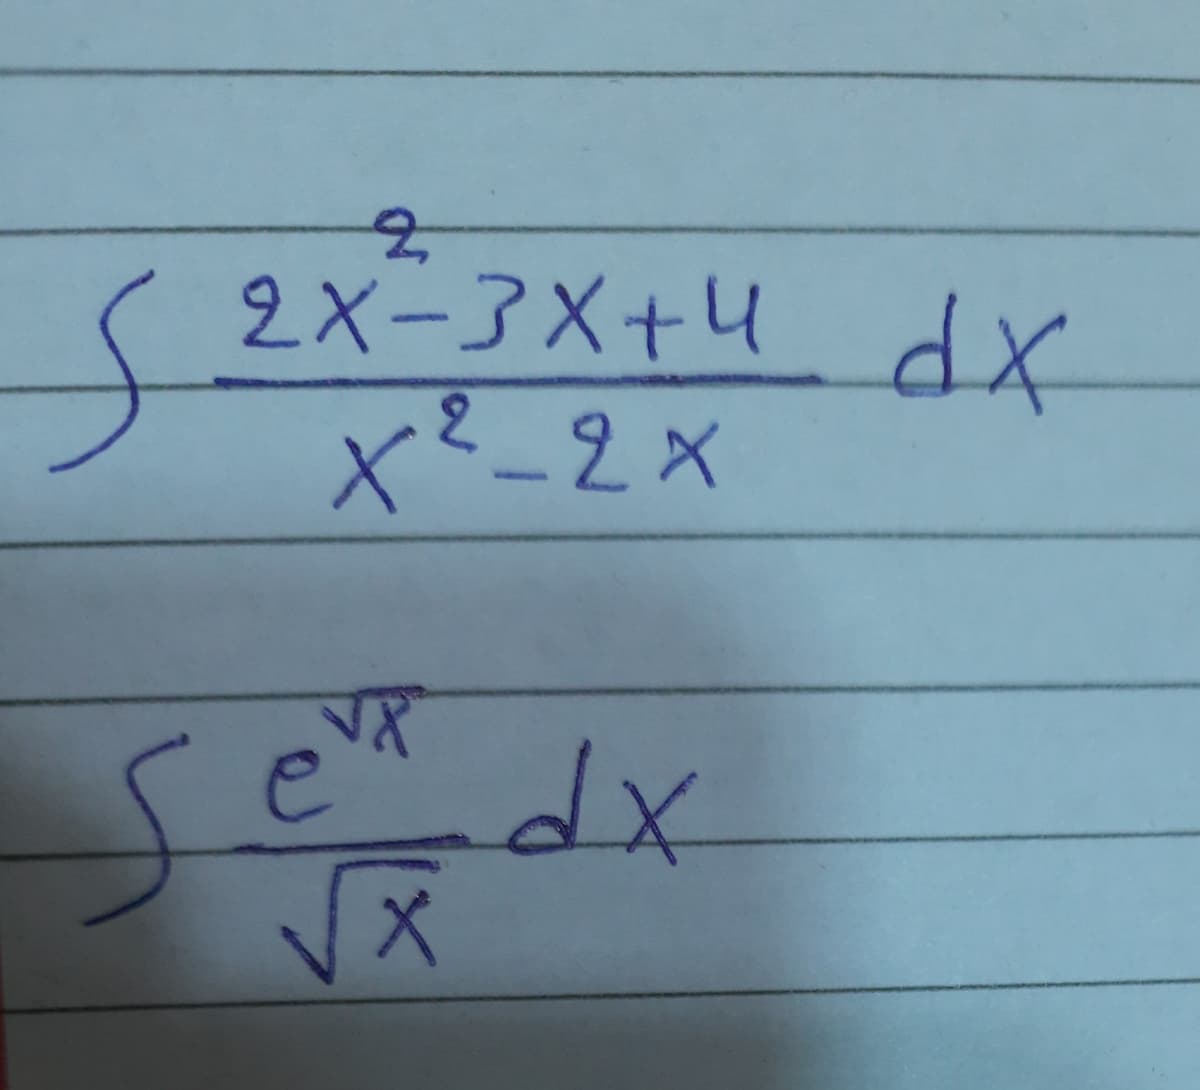 ∫ (2x² - 3x + 4)/(x² - 2x) dx
∫ e^√x/√x dx